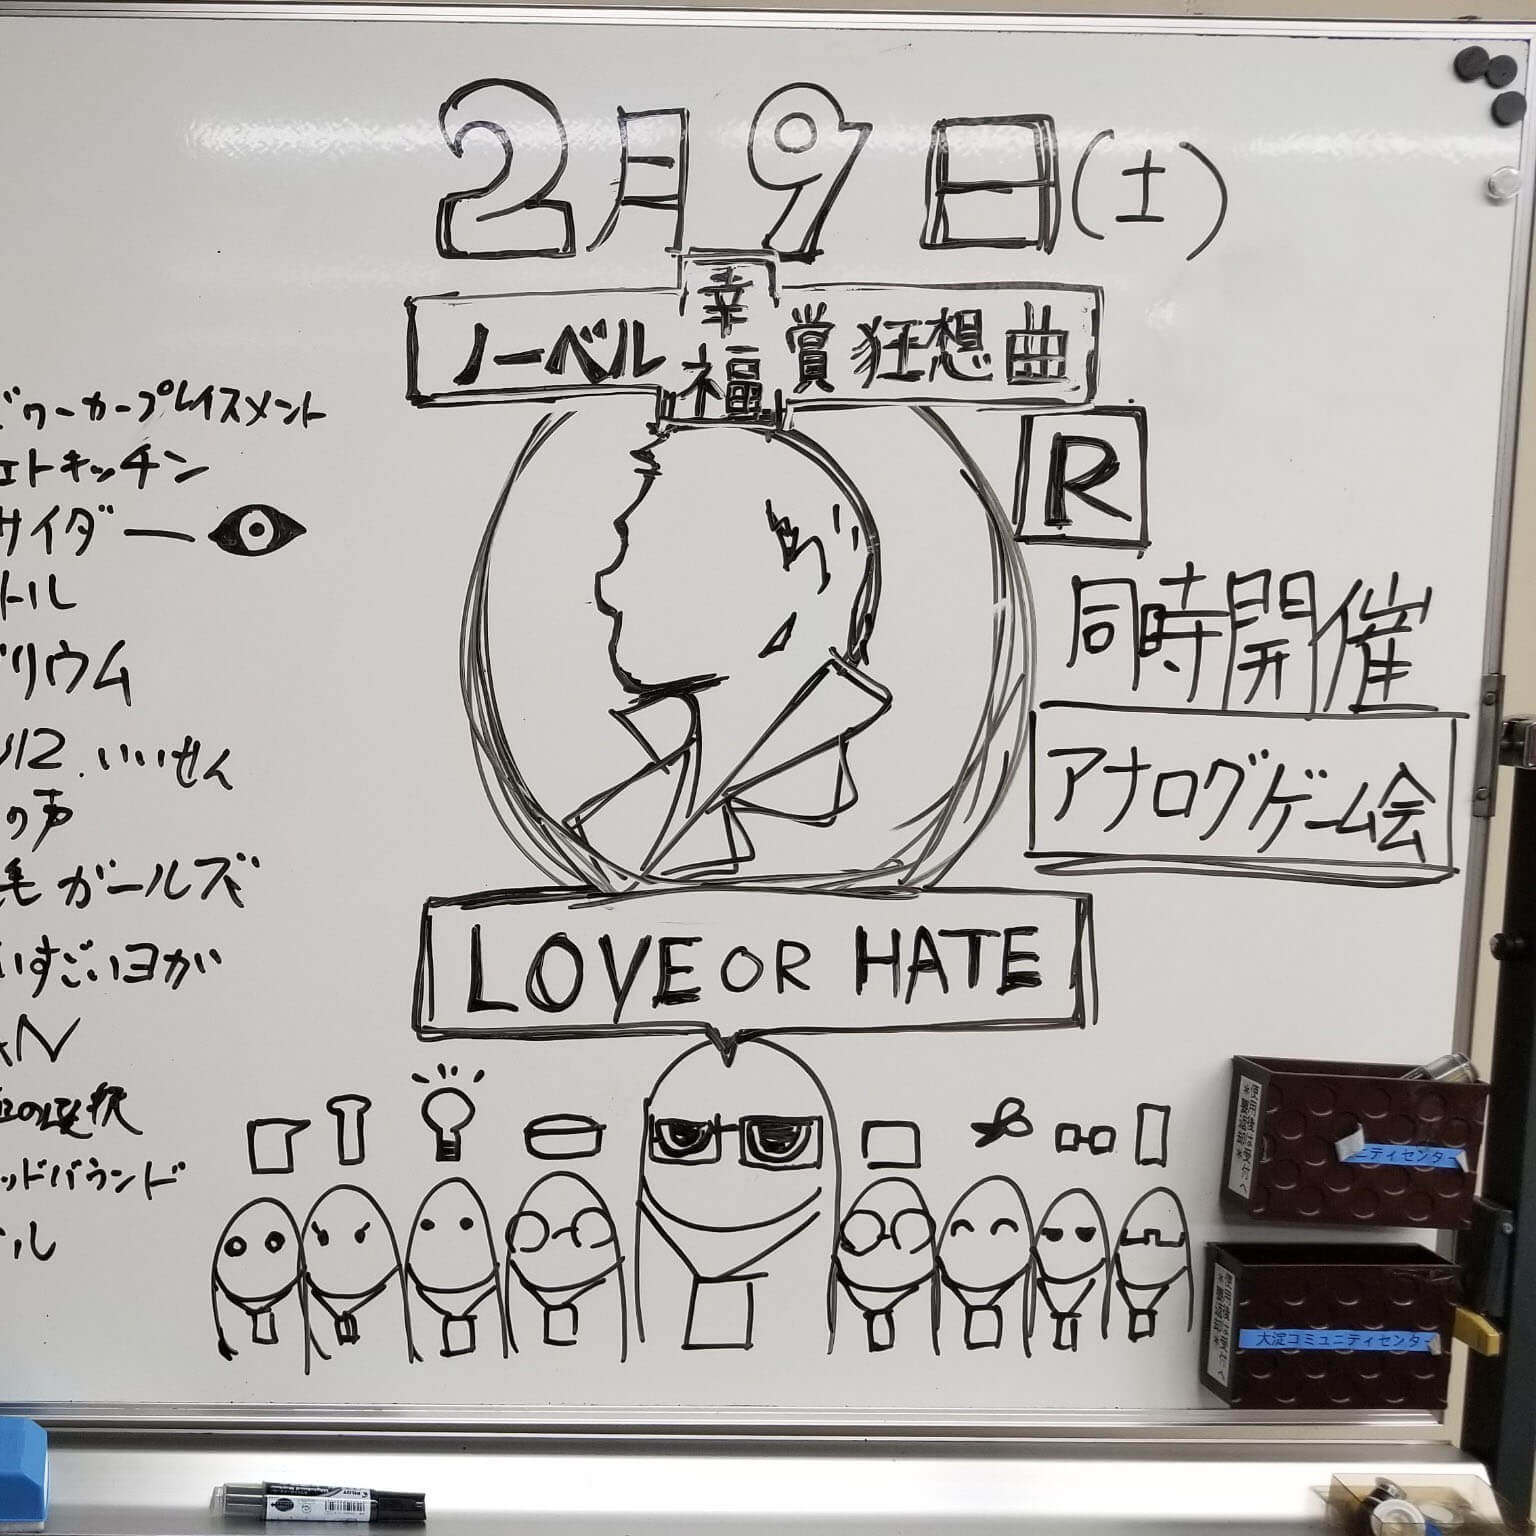 2月9日(土)
ノーベル幸福賞狂想曲
R
同時開催
アナログゲーム会
LOVE OR HATE
ワーカープレイスメント
ェトキッチン
サイダー
トル
リウム
いいせん
の声
毛ガールズ
いすごいヨカい
N
の選択
ッドバウンド
ール
使用後は受付へ
ニティセンター
使用後は受付へ
大淀コミュニティセンター
PILOT